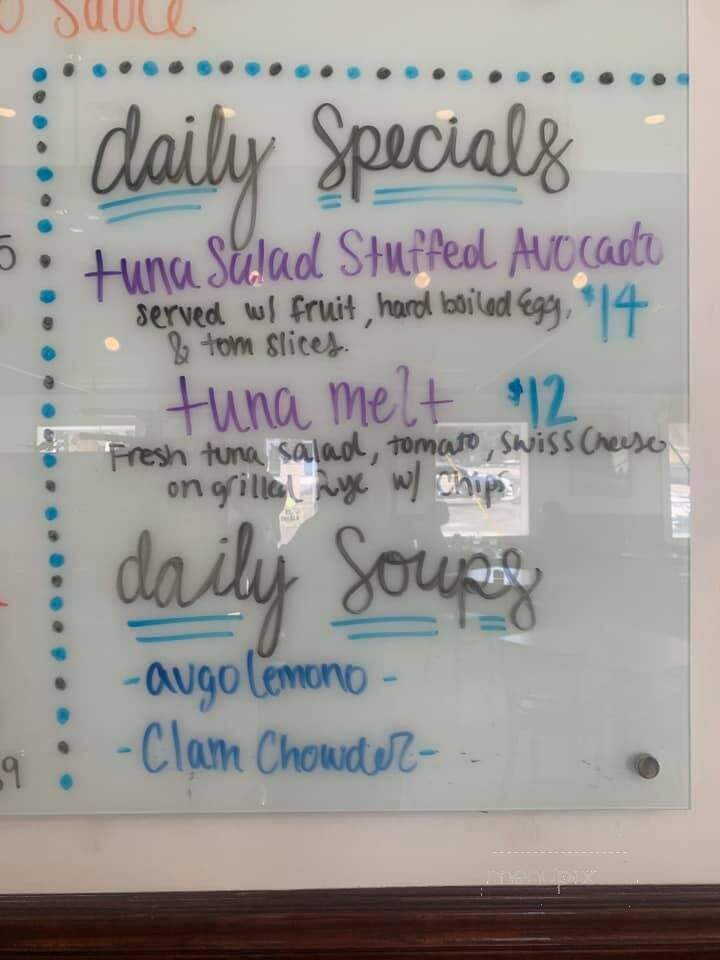 o Sauce
daily Specials
tuna Salad Stuffed Avocado
served w/ fruit, hard boiled Egg, $14
& tom slices.
tuna melt $12
Fresh tuna salad, tomato, Swiss Cheese
on grilled Rye w/ Chips
daily Soups
-avgolemono-
-Clam Chowder-
menupix